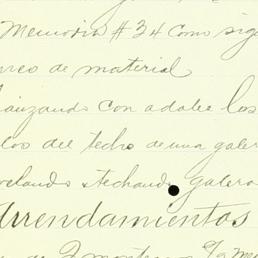 Memoria #34 como sig
reo de material
lanzando con adobe los
los del techo de una galer
velando techando galera
Arrendamientos
de 2 montura